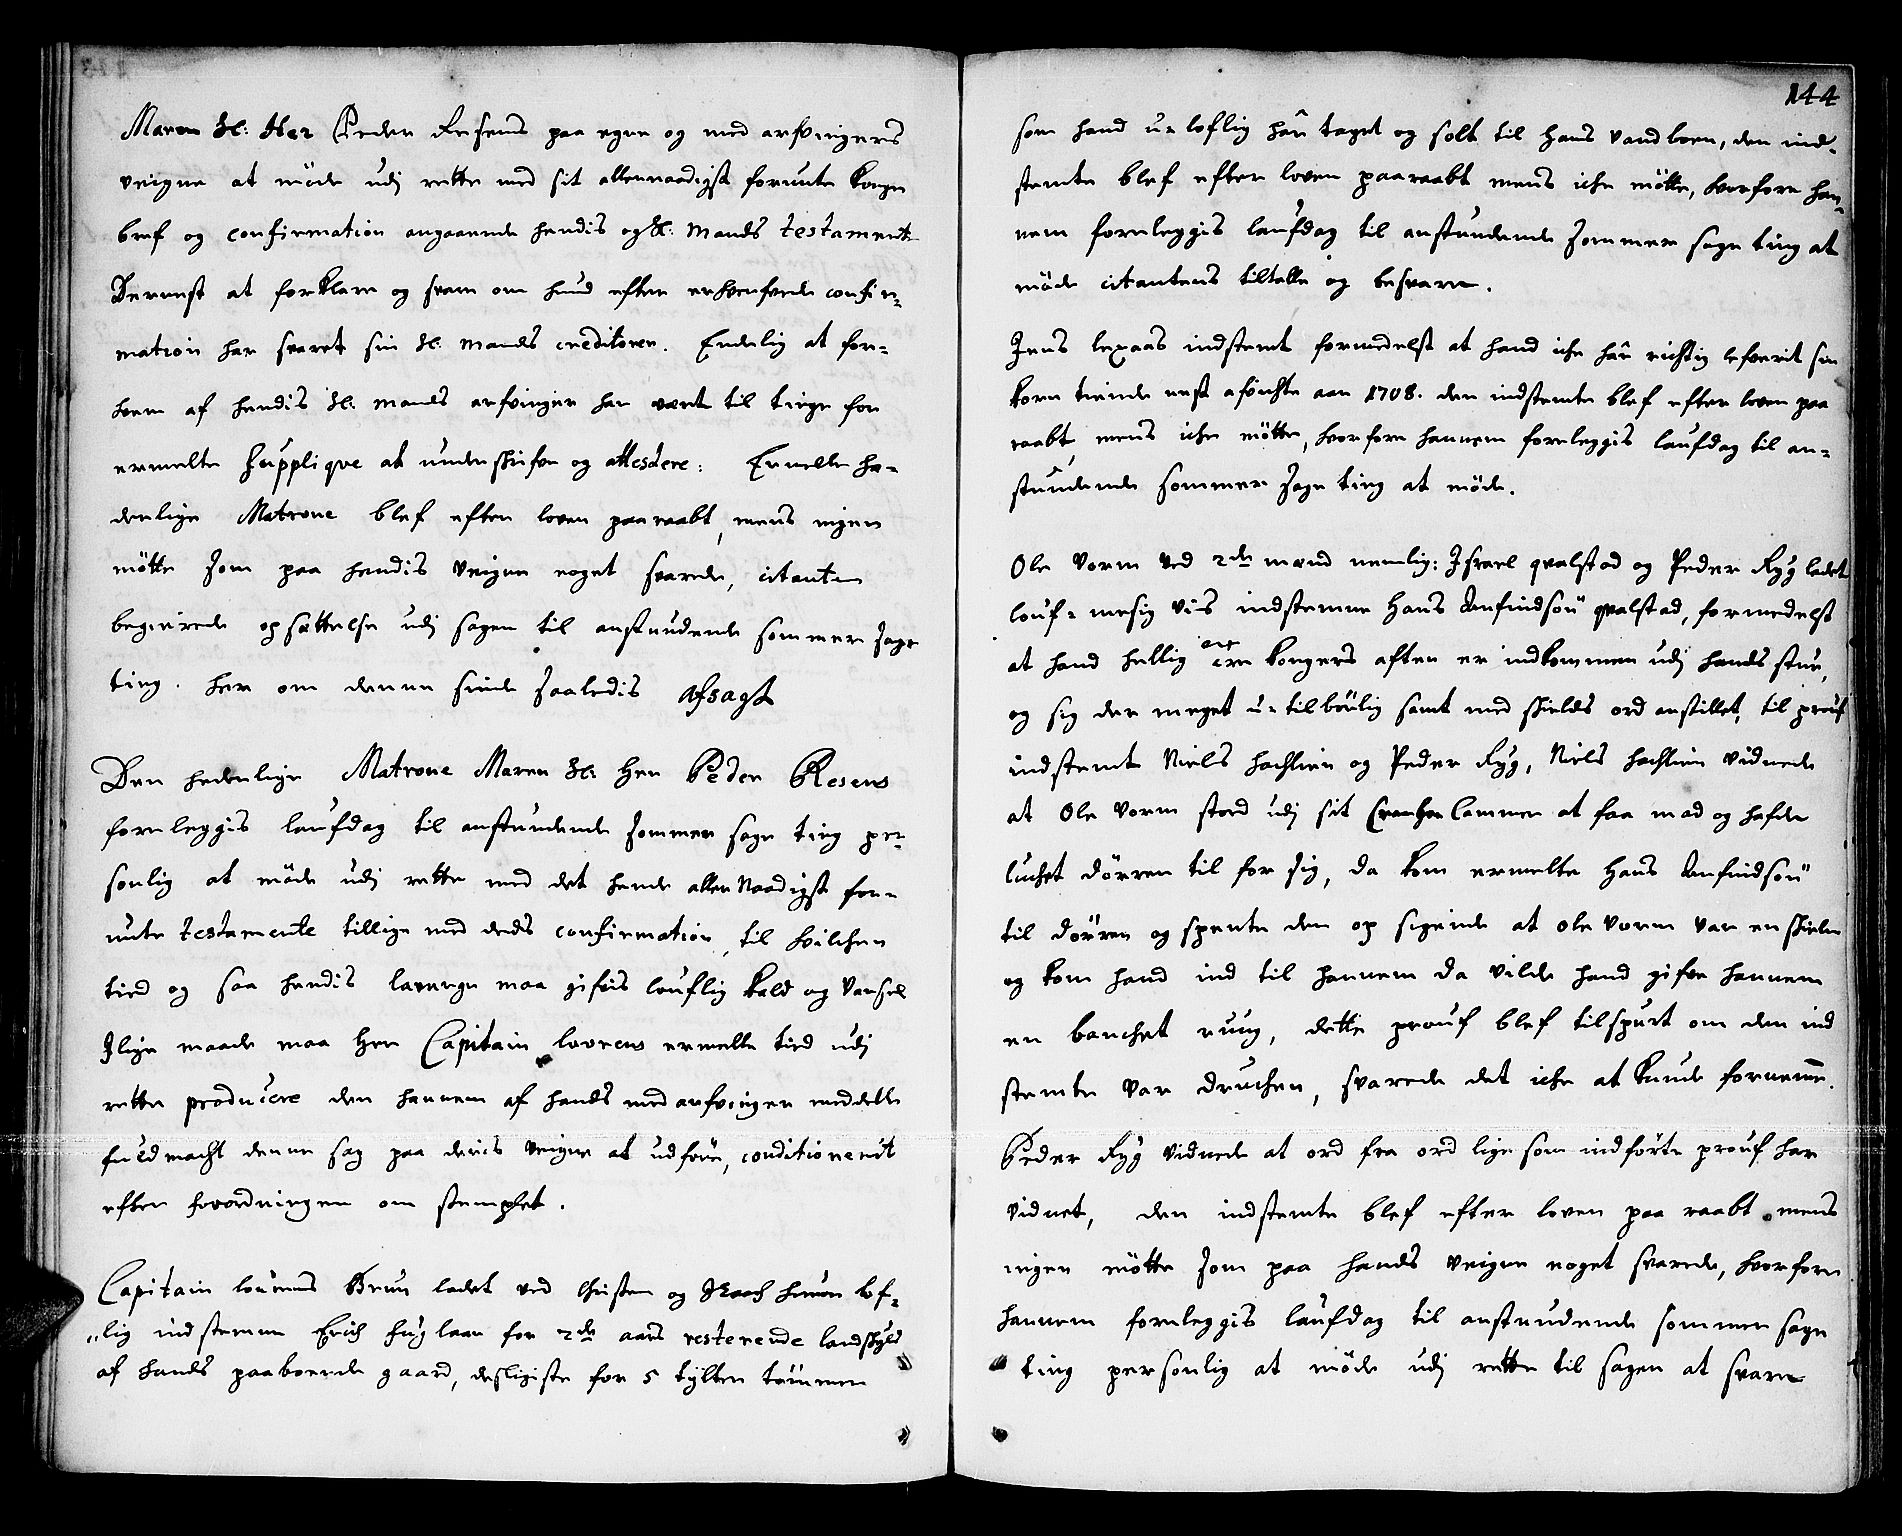 Maren Sl: Her Peder Resens paa egne og med arfvingers
veigne at möde udj rette med sit allernaadigst forunte Konge
bref og confirmation angaaende hendis og Sl: Mands testamente
Dernest at forklare og svare om hund efter erhverfvede confir„
mation har svaret sin Sl: Mands creditorer. Endelig at for„
hvem af hendis Sl: Mands arfvinger har været til tinge for
ermelte Supplique at underskrifve og attestere: Ermelte hæ„
derlige Matrone blef efter loven paaraabt, mens ingen
mötte som paa hendis veigne noget svarede, citanten
begierede opsættelse udj sagen til anstundende sommer sage
ting. her om denne sinde saaledis Afsagt
Den hederlige Matrone Maren Sl: Her Peder Resens
foreleggis laufdag til anstundende sommer sage ting per„
sonlig at möde udj rette med det hende aller Naadigst for„
unte testamente tillige med deds confirmation, til hvilchen
tid og saa hendis laverge maa gifvis louflig Kald og Varsel
Jlige maade maa Her Capitain lovrens ermelte tid udj
rette producere den hannem af hands med arfvinger meddelte
fuldmacht denne sag paa deris veigne at udföre, conditionerit
efter forordningen om stemplet.
Capitain lourens Brun ladet ved Christen og Isaach lof„
„lig indstemme Erich fuglaae for 2de aars resterende landskyld
af hands paaboende gaard, desligiste for 5 tylter tömmer
144
som hand u„loflig har taget og solt til Hans Vandboen, den ind„
stemte blef efter loven paaraabt mens iche mötte, hvorfore han„
nem foreleggis laufdag til anstundende Sommer sage ting at
möde citantens tiltalle og besvare.
Jens lexaas indstemt formedelst at hand iche har richtig lefverit sin
Korn tiende nest afvichte aar 1708. den indstemte blef efter loven paa
raabt, mens iche mötte, hvorfore hannem foreleggis laufdag til an„
stundende Sommer Sage ting at möde.
Ole Vorm ved 2de mænd nemlig: Israel qvalstad og Peder Ryg ladet
louf„mesig viis indstemme Hans Anfindsön qvalstad, formedelst
at hand hellig tre Kongers aften er indkommen udj hands stue,
og sig der meget u„tilbörlig samt med skields ord anstillet, til prouf
indstemt Niels hachlien og Peder Ryg, Niels hachlien vidnede
at Ole Vorm stod udj sit Cammer at faa mad og hafde
luchet dörren til for sig, da kom ermelte Hans Anfindsön
til dörren og spente den op sigende at ole Vorm var en skielm
og kom hand ind til hannem da vilde hand gifve hannem
en banchet rung, dette prouf blef tilspurt om den ind
stemte var druchen, svarede det iche at kunde fornemme.
Peder Ryg vidnede at ord fra ord lige som indförte prouf har
vidnet, den indstemte blef efter loven paa raabt mens
ingen mötte som paa hands veigne noget svarede, hvorfore
hannem foreleggis laufdag til anstundende sommer sage
ting personlig at möde udj rette til sagen at svare